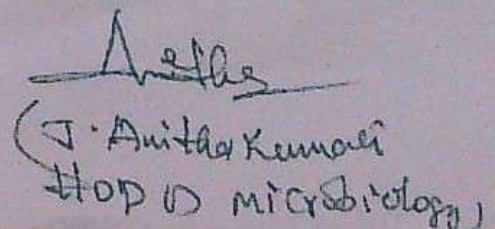 Anitha
(J. Anitha Kumari
HOD Microbiology,